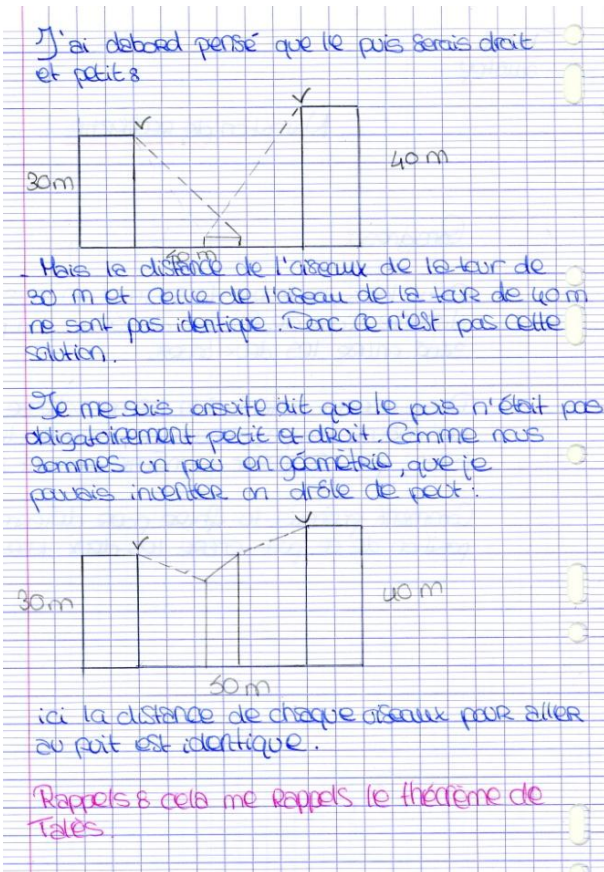 J'ai debord pensé que le puis serais droit
et petit :
30m
40 m
50 m
- Mais la distance de l'oiseaux de la tour de
30 m et celle de l'oiseau de la tour de 40 m
ne sont pas identique. Donc ce n'est pas cette
solution.
Je me suis ensuite dit que le puis n'était pas
obligatoirement petit et droit. Comme nous
sommes un peu en géomètrie, que je
pouvais inventer un drôle de peut :
30m
40 m
50 m
ici la distance de chaque oiseaux pour aller
au puit est identique.
Rappels : cela me Rappels le théorème de
Talès.